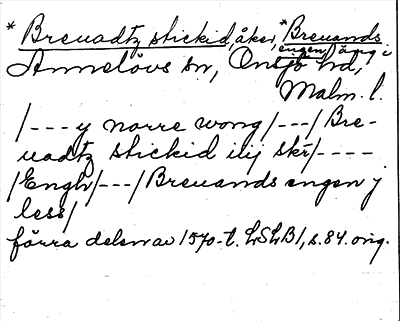 * Breuadtz stickid, åker, * Breuands
engen, äng i
Annelövs sn, Onsjö hd,
Malm. l.
/---y norre wong/---/Bre-
uadtz stickid iij skr/----
/Engh/---/Breuands engen j
less/
förra delen av 1570-t. LSLB1, s. 84. orig.